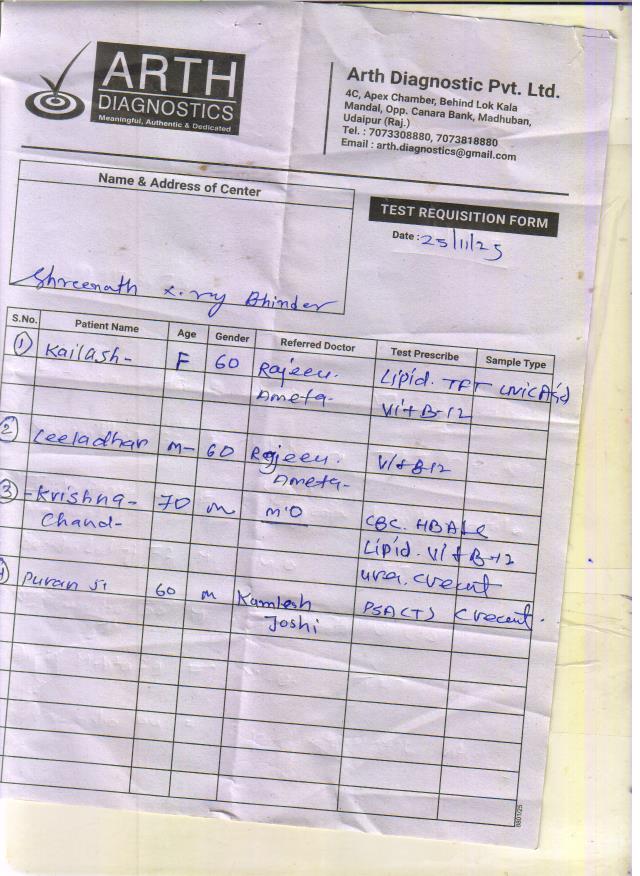 ARTH
DIAGNOSTICS
Meaningful, Authentic & Dedicated
Arth Diagnostic Pvt. Ltd.
4C, Apex Chamber, Behind Lok Kala
Mandal, Opp. Canara Bank, Madhuban,
Udaipur (Raj.)
Tel. : 7073308880, 7073818880
Email : arth.diagnostics@gmail.com
Name & Address of Center
Shreenath x.ray Bhinder
TEST REQUISITION FORM
Date : 25/11/25
S.No. Patient Name Age Gender Referred Doctor Test Prescribe Sample Type
1 Kailash- F 60 Rajeev. Lipid. TFT Uric Acid
Ameta- Vit B-12
2 Leeladhar M- 60 Rajeev. Vit B-12
Ameta-
3 -Krishna- 70 m M'O CBC. HBA1c
Chand- Lipid. Vit B-12
urea. Creent
Puran 60 m Kamlesh PSA(T) Creent.
Joshi